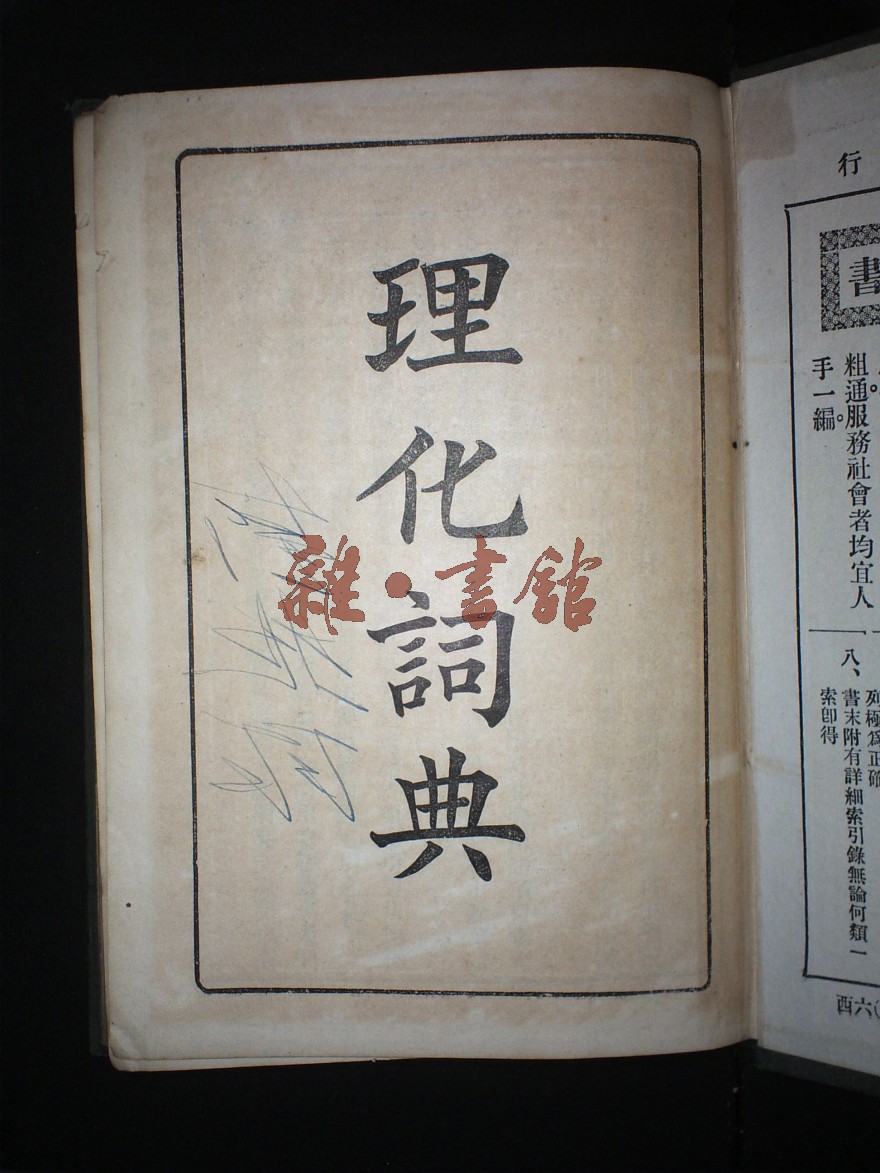 理化詞典
雜·書館
行
書
粗通服務社會者均宜人
手一編。
八、
列極爲正確
書末附有詳細索引錄無論何類一
索卽得